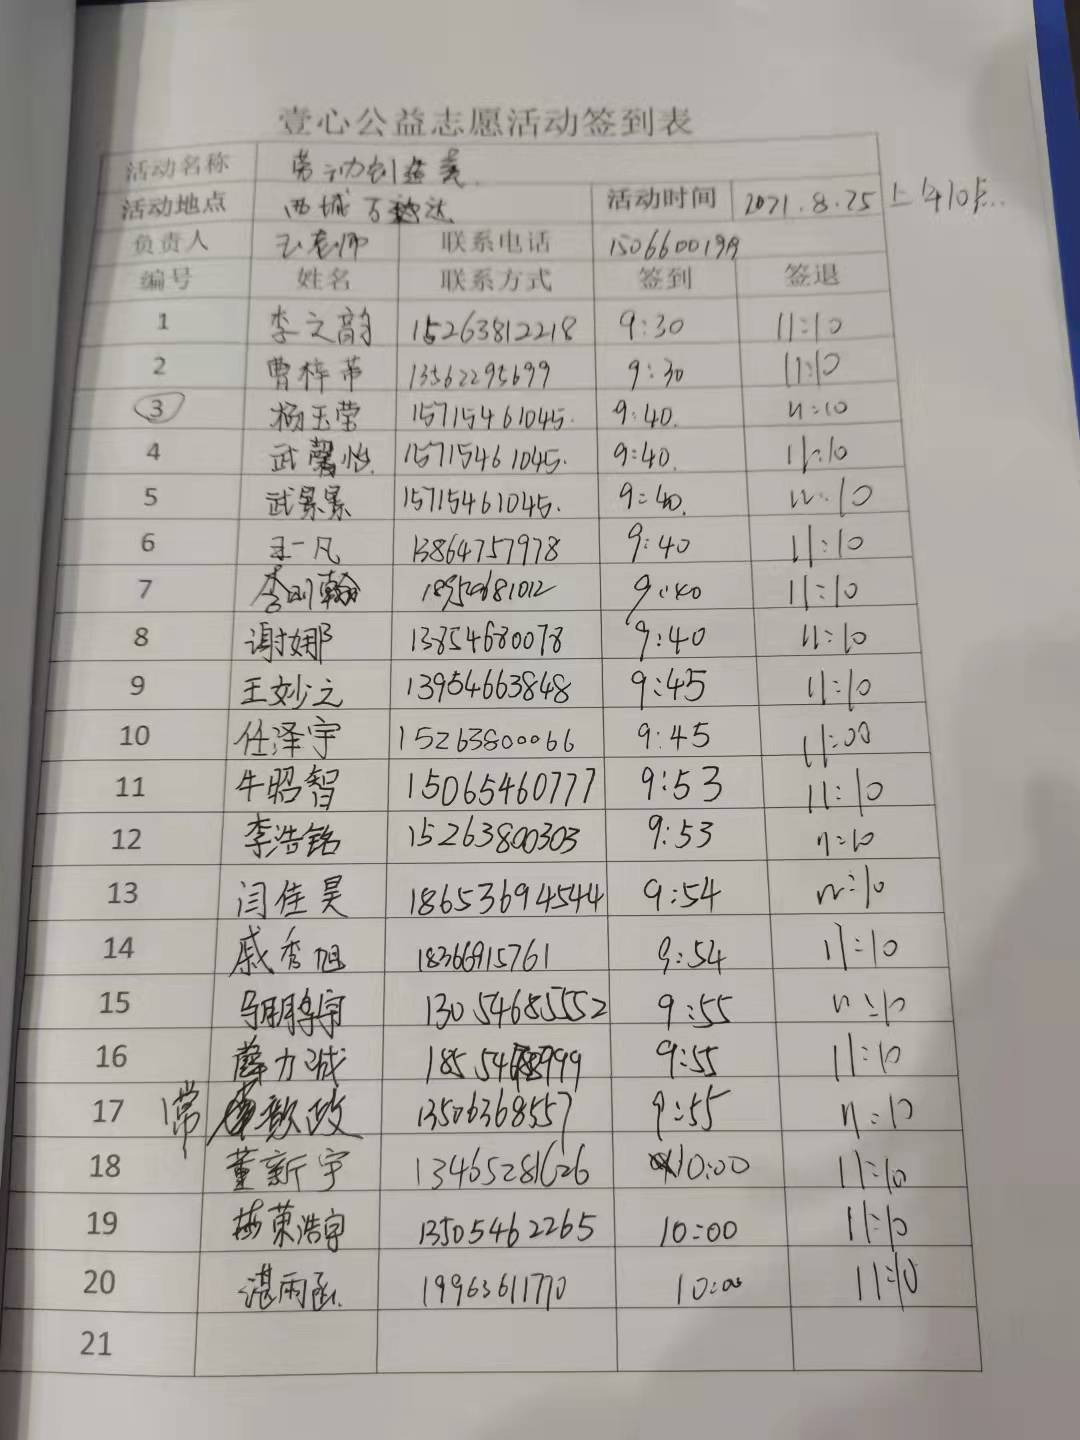 壹心公益志愿活动签到表
活动名称 劳动创造美
活动地点 西城万达 活动时间 2021.8.25 上午10点..
负责人 王老师 联系电话
编号 姓名 联系方式 签到 签退
1 李之韵 15263812218 9:30 11:10
2 曹梓芾 13562295699 9:30 11:10
3 杨玉莹 15715461045. 9:40. 11:10
4 武馨怡. 15715461045. 9:40. 11:10
5 武景景 15715461045. 9:40. 11:10
6 王一凡 13864757978 9:40 11:10
7 9:40 11:10
8 谢娜 13854680078 9:40 11:10
9 王妙之 13954663848 9:45 11:10
10 任泽宇 15263800066 9:45 11:00
11 牛昭智 15065460777 9:53 11:10
12 李浩铭 15263800303 9:53 11:10
13 闫佳昊 18653694544 9:54 11:10
14 戚秀旭 18366915761 9:54 11:10
15 13054685552 9:55 11:10
16 薛力诚 9:55 11:10
17 常歆政 13506368557 9:55 11:10
18 董新宇 13465281626 10:00 11:10
19 13505462265 10:00 11:10
20 湛雨函. 19963611770 10:00 11:10
21